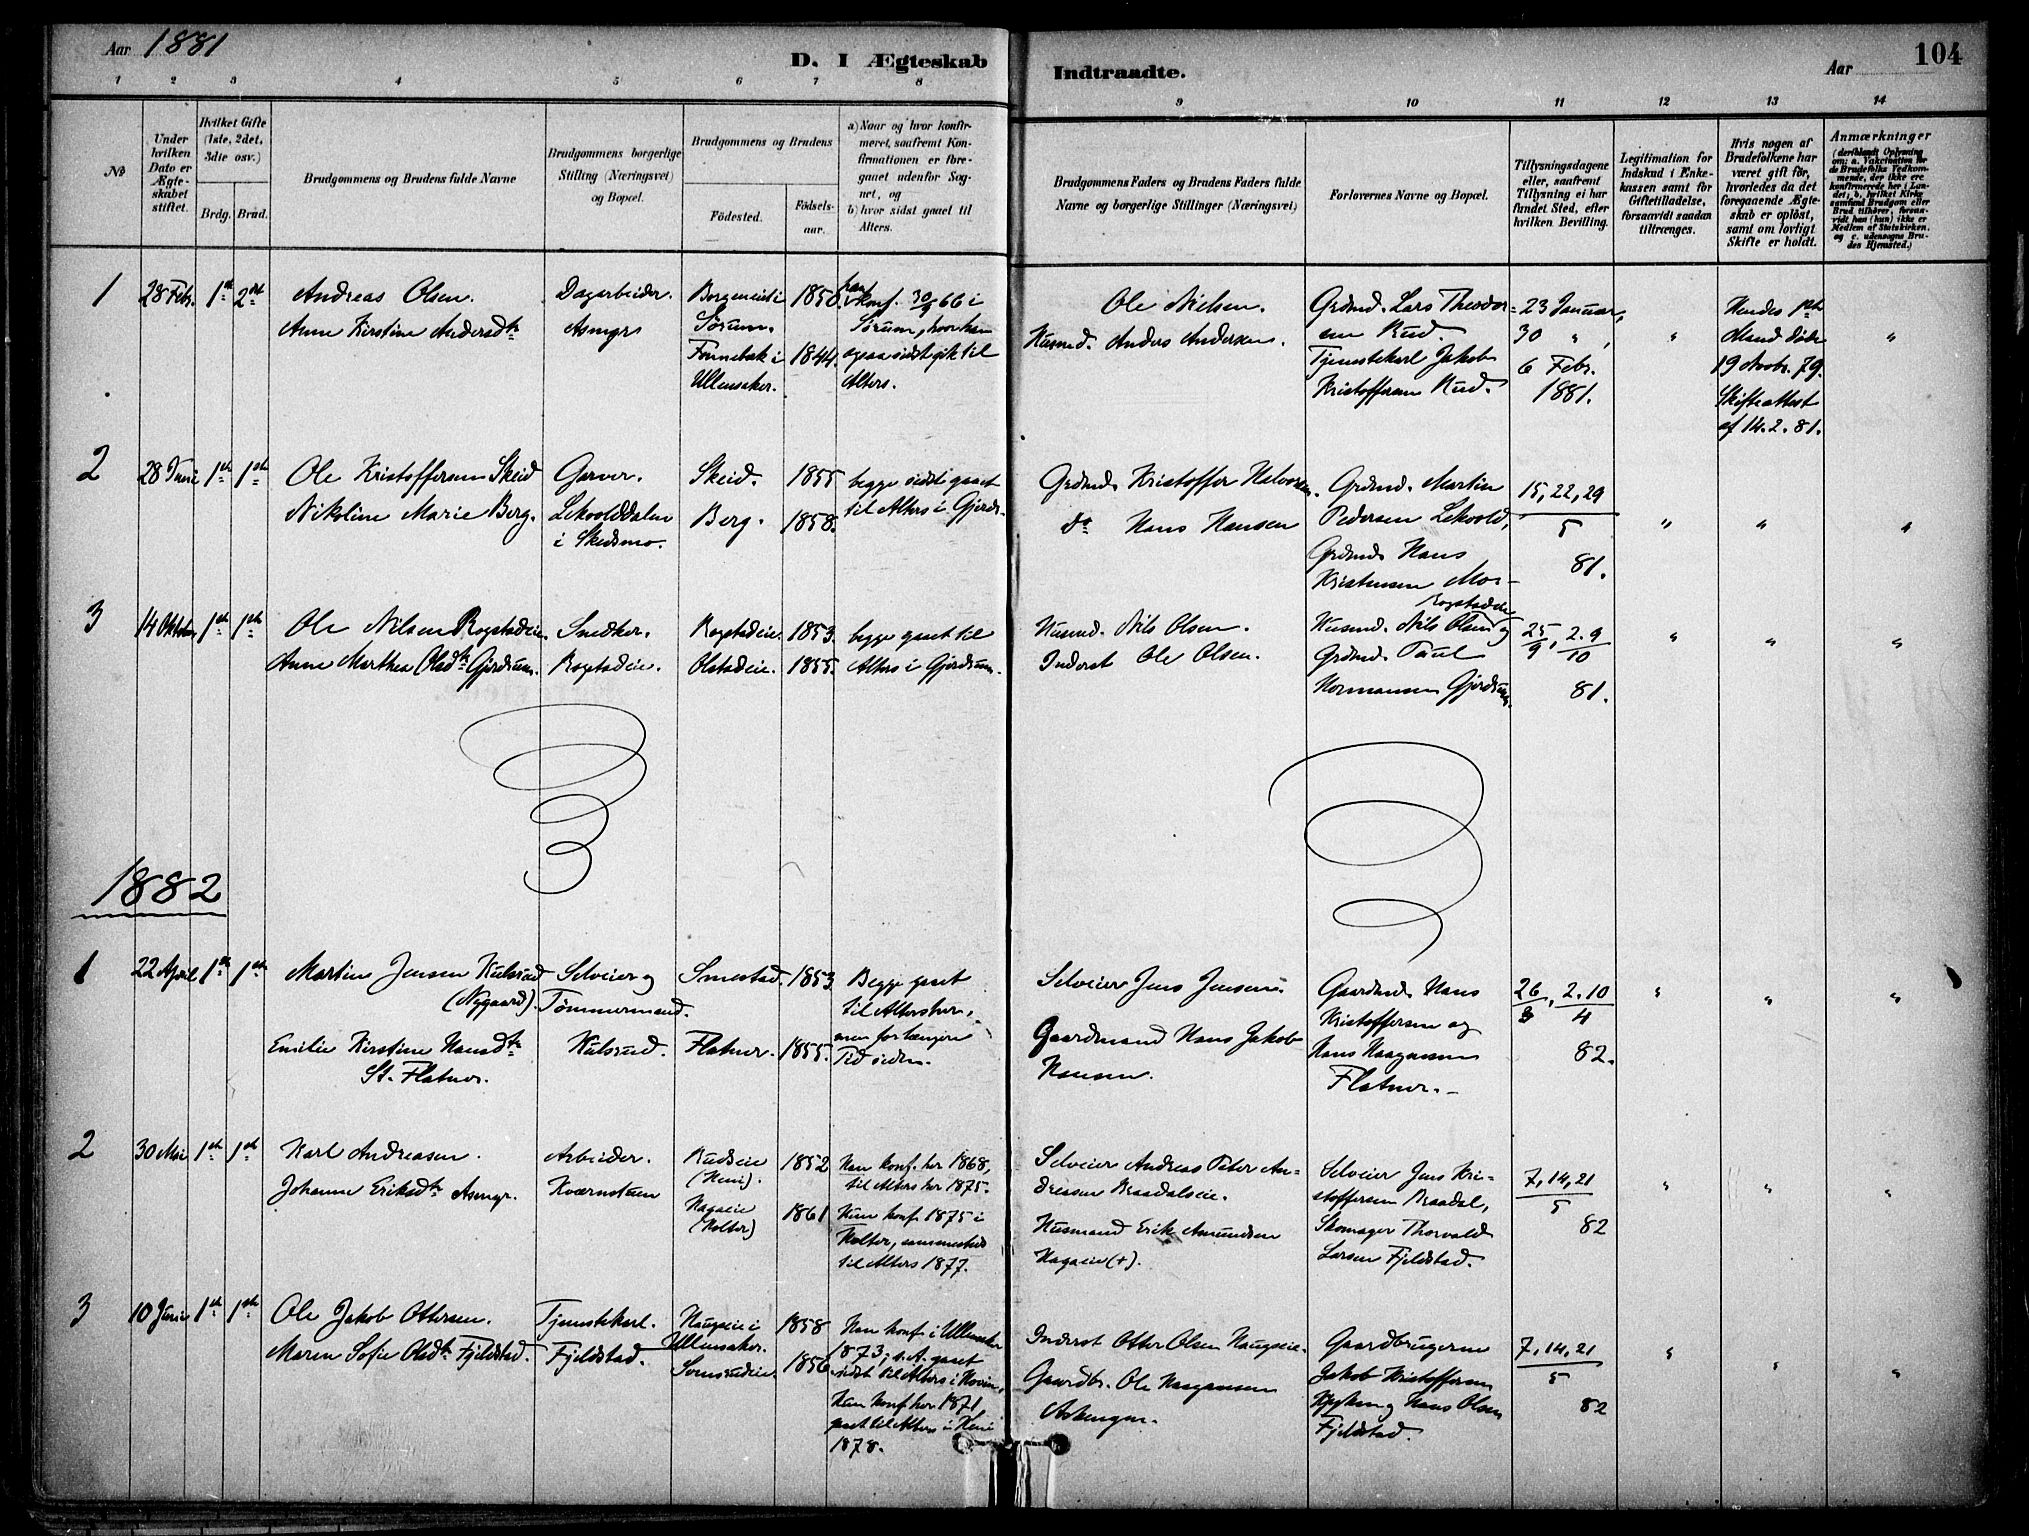 Aar 1881
D. I Ægteskab
Indtraadte.
Aar
104
1 2 3 4 5 6 7 8
9 10 11 12 13 14
No
Under hvilken Dato er Ægteskabet stiftet.
Hvilket Gifte (1ste, 2det, 3die osv.)
Brdg. Brud.
Brudgommens og Brudens fulde Navne
Brudgommens borgerlige Stilling (Næringsvei) og Bopæl.
Brudgommens og Brudens
Födested.
Födselsaar.
a) Naar og hvor konfirmeret, saafremt Konfirmationen er foregaaet udenfor Sognet, og
b) hvor sidst gaaet til Alters.
Brudgommens Faders og Brudens Faders fulde Navne og borgerlige Stillinger (Næringsvei)
Forlovernes Navne og Bopæl.
Tillysningsdagene eller, saafremt Tillysning ei har fundet Sted, efter hvilken Bevilling.
Legitimation for Indskud i Enkekassen samt for Giftetilladelse, forsaavidt saadan tiltrænges.
Hvis nogen af Brudefolkene har været gift för, hvorledes da det foregaaende Ægteskab er oplöst, samt om lovligt Skifte er holdt.
Anmærkninger (deriblandt Oplysning om: a. Vakcination for de Brudefolks Vedkommende, der ikke ere konfirmerede her i Landet; b. hvilket Kirkesamfund Brudgom eller Brud tilhörer, forsaavidt han (hun) ikke er Medlem af Statskirken. og c. udensogns Brudes Hjemsted.)
1 28 Febr. 1ste 2det
Andreas Olsen.
Anne Kirstine Andersdtr
Dagarbeider.
Asmyr
Borgeneie i
Sörum.
Fonnebæk i
Ullensaker.
1850.
1844.
han konf. 30/9 66 i
Sörum, hvor han
ogsaa sidst gik til
Alters.
Ole Nielsen.
Husmd. Anders Andersen.
Grdmd. Lars Theodor-
sen Rud.
Tjenstekarl Jakob
Kristoffersen Rud.
23 Januar,
30 " ,
6 Febr.
1881.
"
Hendes 1ste
Mand döde
19 Novbr. 79.
Skifteattest
af 14. 2. 81.
"
2 28 Juni 1ste 1ste
Ole Kristoffersen Skeid
Nikoline Marie Berg.
Garver.
Lekvolddalen
i Skedsmo.
Skeid.
Berg.
1855
1858.
begge sidst gaaet
til Alters i Gjerdr.
Grdmd. Kristoffer Halvorsen.
do Hans Hansen
Grdmd. Martin
Pedersen Lekvold,
Grdmd. Hans
Kristensen Mo–
15, 22, 29
5
81.
" " "
3 14 Oktober 1ste 1ste
Ole Nilsen Rogstadeie
Anne Marthea Olsdtr Gjerdrum.
Snedker.
Rogstadeie.
Rogstadeie.
Olstadeie.
1853.
1855.
begge gaaet til
Alters i Gjerdrum.
Husmd. Nils Olsen.
Inderst Ole Olsen.
Rogstadeie
Husmd. Nils Olsen og
Grdmd. Paul
Hermansen Gjerdrum.
25/9, 2. 9/10
81.
" " "
1882
1 22 April 1ste 1ste
Martin Jensen Kulsrud
(Nygaard).
Emilie Kirstine Hansdtr
St. Flatner.
Selveier og
Tömmermand.
Kulsrud.
Smestad.
Flatner.
1853
1855.
Begge gaaet
til Alters her,
men for længere
Tid siden.
Selveier Jens Jensen.
Gaardmand Hans Jakob
Hansen.
Gaardmd. Hans
Kristoffersen og
Hans Haagensen
Flatner. –
26/3, 2. 10/4
82.
" " "
2 30 Mai 1ste 1ste
Karl Andreasen.
Johanne Eriksdtr Asmyr.
Arbeider.
Kværnstuen
Rudseie
(Heni).
Hagaeie
(Holter)
1852
1861
Han konf. her 1868,
til Alters her 1875.
Hun konf. 1875 i
Holter, sammesteds
til Alters 1877.
Selveier Andreas Peter An-
dreasen Braadalseie.
Husmand Erik Amundsen
Hagaeie (+).
Selveier Jens Kri-
stoffersen Braadal,
Skomager Thorvald
Larsen Fjeldstad.
7, 14, 21
5
82
" " "
3 10 Juni 1ste 1ste
Ole Jakob Ottersen.
Maren Sofie Olsdtr Fjeldstad.
Tjenstekarl.
Fjeldstad.
Haugseie i
Ullensaker.
Somsrudeie.
1858
1856
Han konf. i Ullensaker
1873, s. A. gaaet
sidst til Alters i Hovin,
Hun konf. her 1871,
gaaet til Alters i Heni
1878.
Inderst Otter Olsen Haugseie.
Gaardbr. Ole Haagensen
Askengen.
Gaardbrugerne
Jakob Kristoffersen
og Hans Olsen
Fjeldstad.
7, 14, 21
5
82
" " "